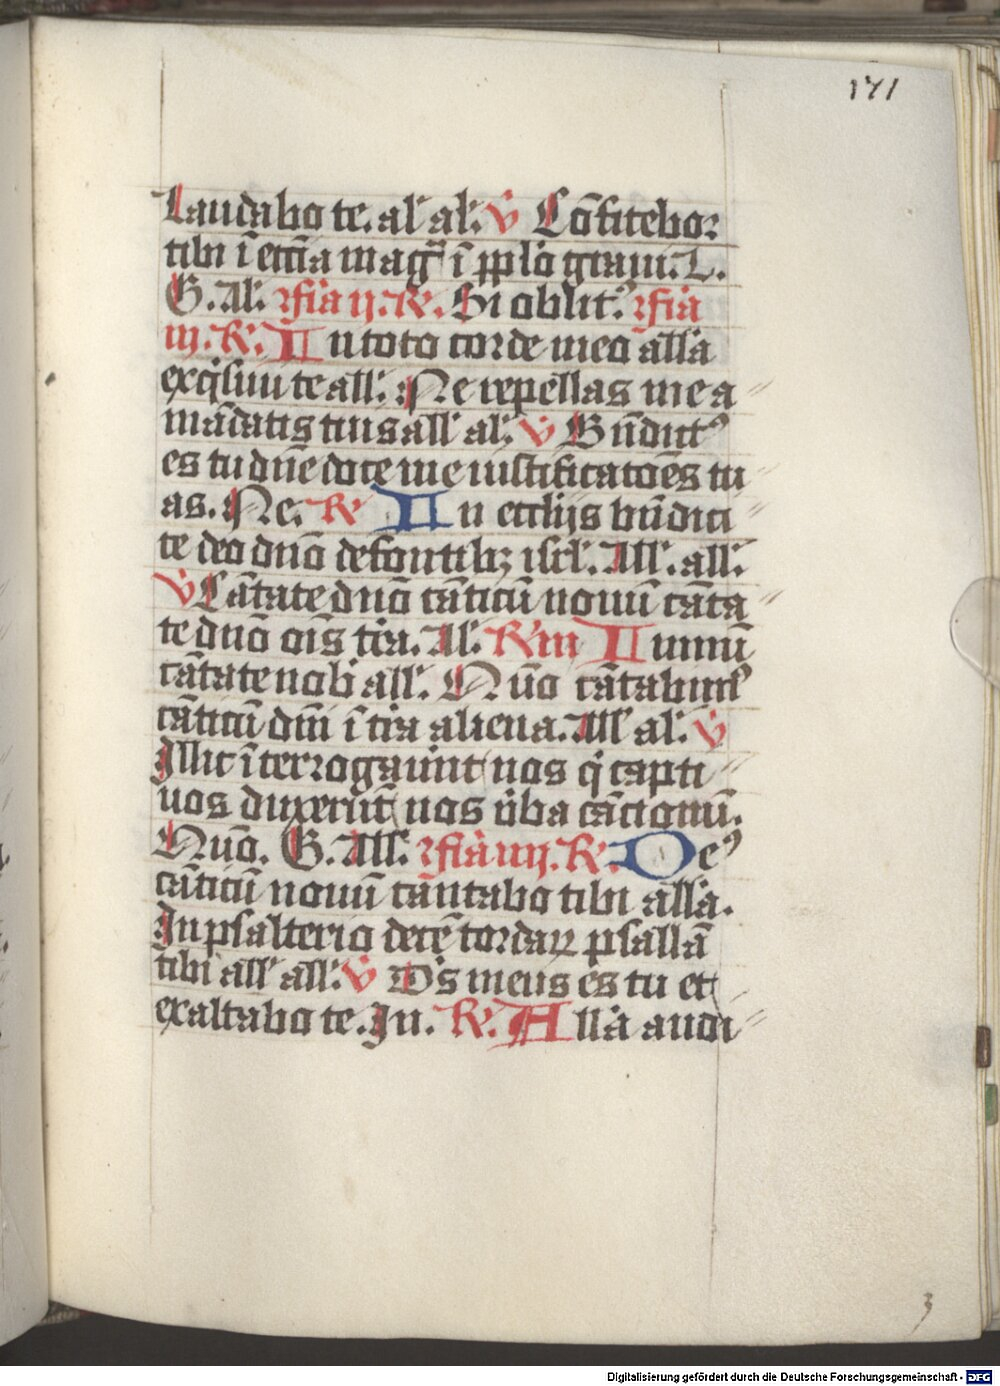 171
Laudabo te. al' al'. v̄ Cōfitebor
tibi ī eccīa mag̃ ī pplō grauí. L.
G. Al'. ꝛ fīa ij. R'. Si oblit'. ꝛ fīa
iij. R'. In toto corde meo all'a
exq̄siui te all'. Ne repellas me a
mādatis tuis all' al'. v̄ Bn̄dict'
es tu dn̄e doce me iustificatōes tu
as. Ne. R' In eccl'ijs bn̄dici
te deo dn̄o de fontibꝫ isrl'. All'. all'.
v̄ Cātate dn̄o cāticū nouū cāta
te dn̄o oīs t'ra. Al'. R' iij Ymnū
cātate nob' all'. Quō cātabim'
cāticū dn̄i ī t'ra aliena. All' al'. v̄
Illic īterrogauūt nos q' capti
uos duxerūt nos v'ba cāctionū.
Quō. G. All'. ꝛ fīa iiij. R'. De'
cāticū nouū cāntabo tibi all'a.
In psalterio decē cordaꝝ psallā
tibi all' all'. v̄ Ds̄ meus es tu et
exaltabo te. In. R'. All'a audi
3
Digitalisierung gefördert durch die Deutsche Forschungsgemeinschaft - DFG